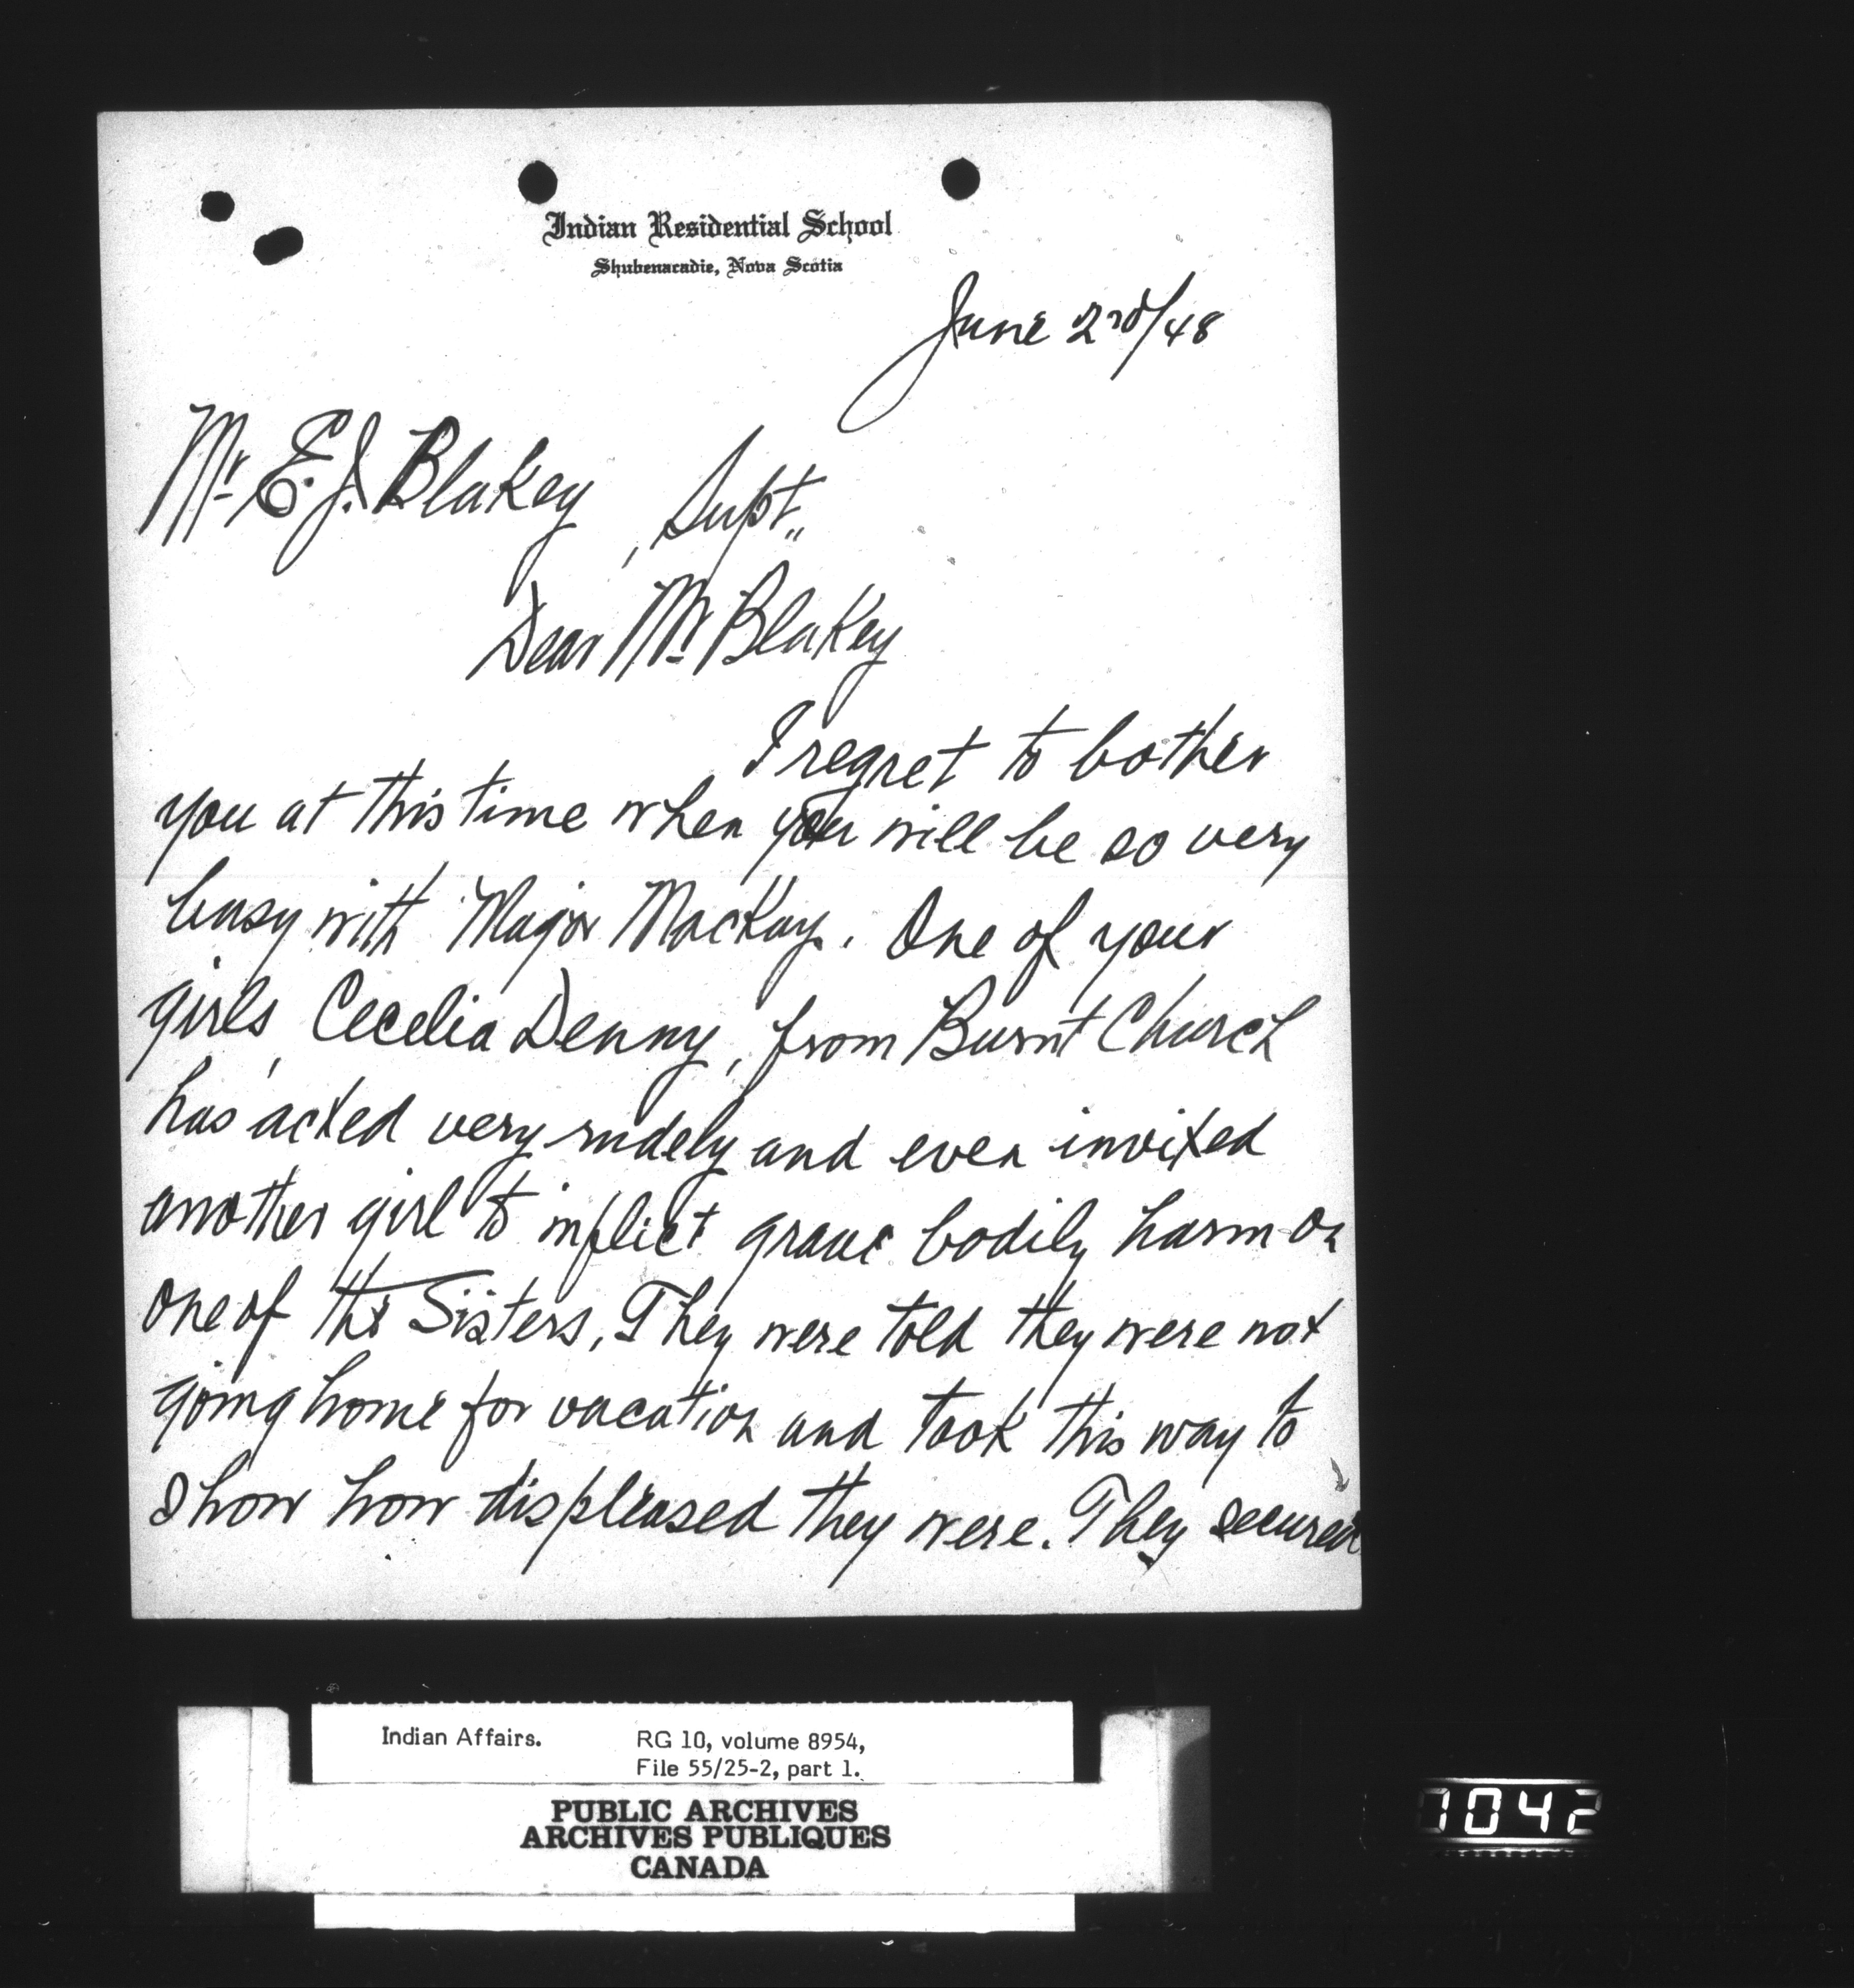 Indian Residential School
Shubenacadie, Nova Scotia
June 2nd/48
Mr. E. J. Blakey, Supt.,
Dear Mr. Blakey
I regret to bother
you at this time when you will be so very
busy with Major MacKay. One of your
girls, Cecelia Denny, from Burnt Church
has acted very rudely and even invited
another girl to inflict grave bodily harm on
one of the Sisters. They were told they were not
going home for vacation and took this way to
show how displeased they were. They secured
Indian Affairs. RG 10, volume 8954,
File 55/25-2, part 1.
PUBLIC ARCHIVES
ARCHIVES PUBLIQUES
CANADA
1042